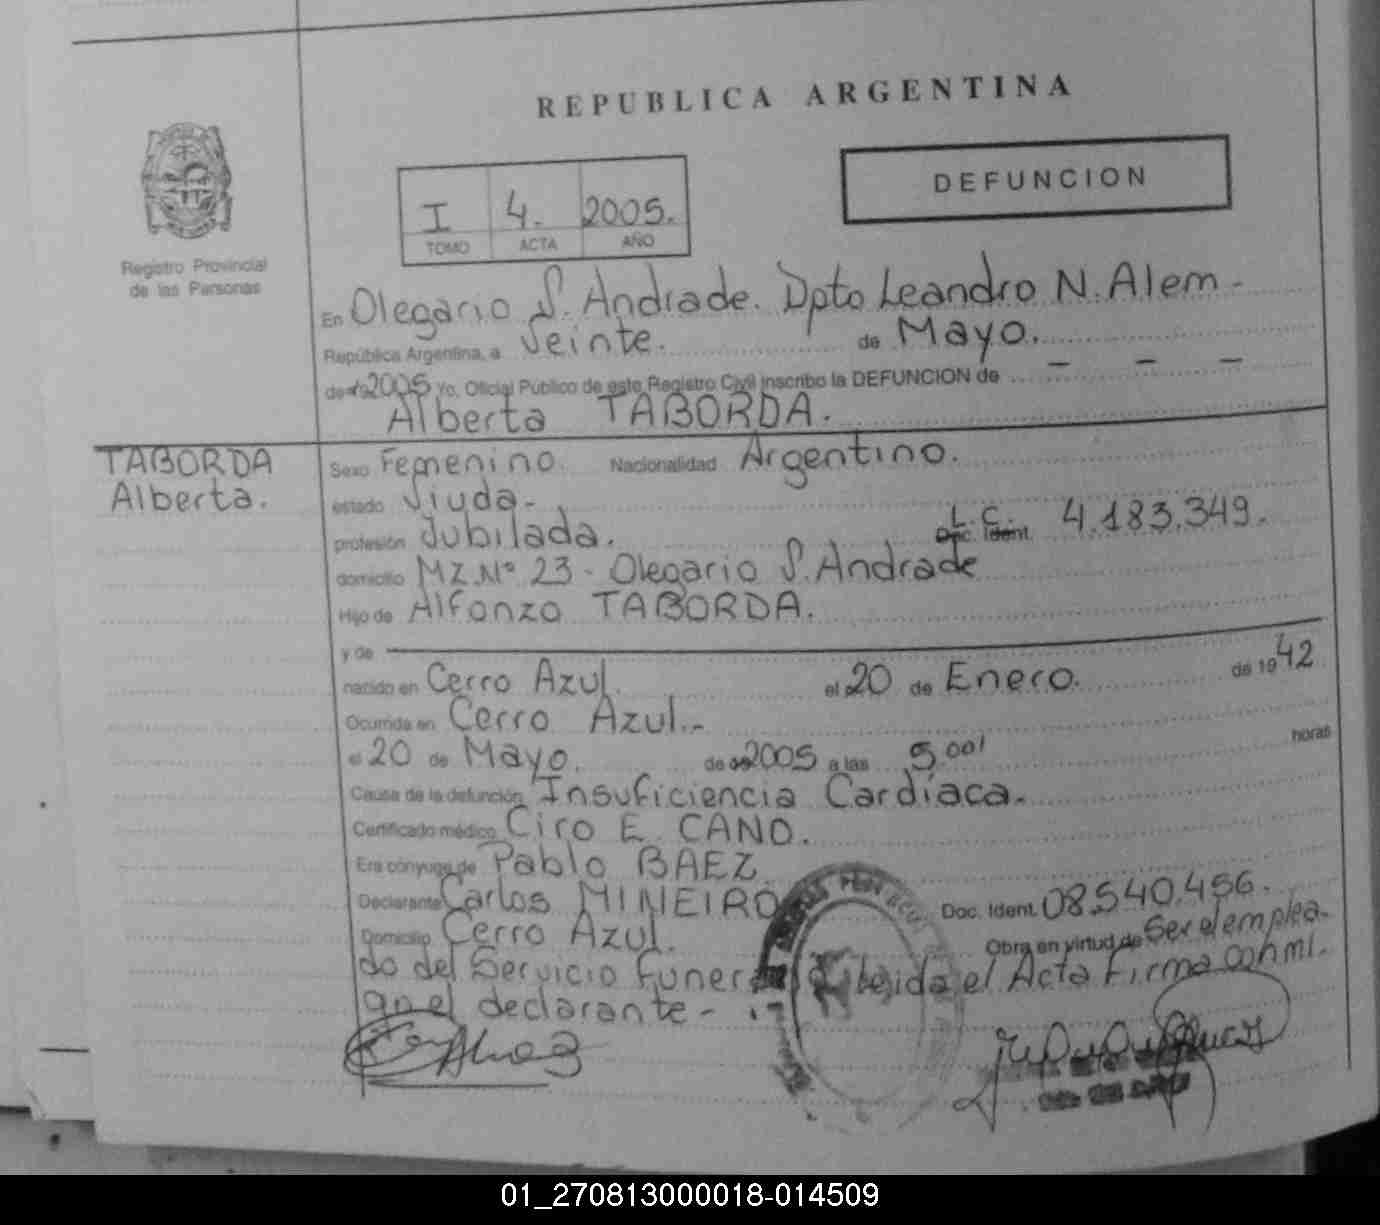 REPUBLICA ARGENTINA
DEFUNCION
I 4. 2005.
TOMO ACTA AÑO
Registro Provincial
de las Personas
En Olegario V. Andrade. Dpto Leandro N. Alem -
República Argentina, a Veinte. de Mayo.
de 2005 Yo, Oficial Público de este Registro Civil inscribo la DEFUNCION de - - -
Alberta TABORDA.
TABORDA
Alberta.
Sexo Femenino. Nacionalidad Argentino.
estado Viuda -
profesión Jubilada. L. C. Doc. Ident. 4.183.349.
domicilio MZ.Nº 23 - Olegario V. Andrade
Hijo de Alfonzo TABORDA.
y de
nacido en Cerro Azul. el 20 de Enero. de 1942
Ocurrida en Cerro Azul.-
el 20 de Mayo. de 2005 a las 5.00 horas
Causa de la defunción Insuficiencia Cardíaca.
Certificado médico Ciro E. CANO.
Era cónyuge de Pablo BAEZ
Declarante Carlos MINEIRO Doc. Ident. 08.540.456.
Domicilio Cerro Azul. Obra en virtud de Ser el emplea-
do del Servicio Funer Leida el Acta Firma conmi-
go el declarante -
01_270813000018-014509